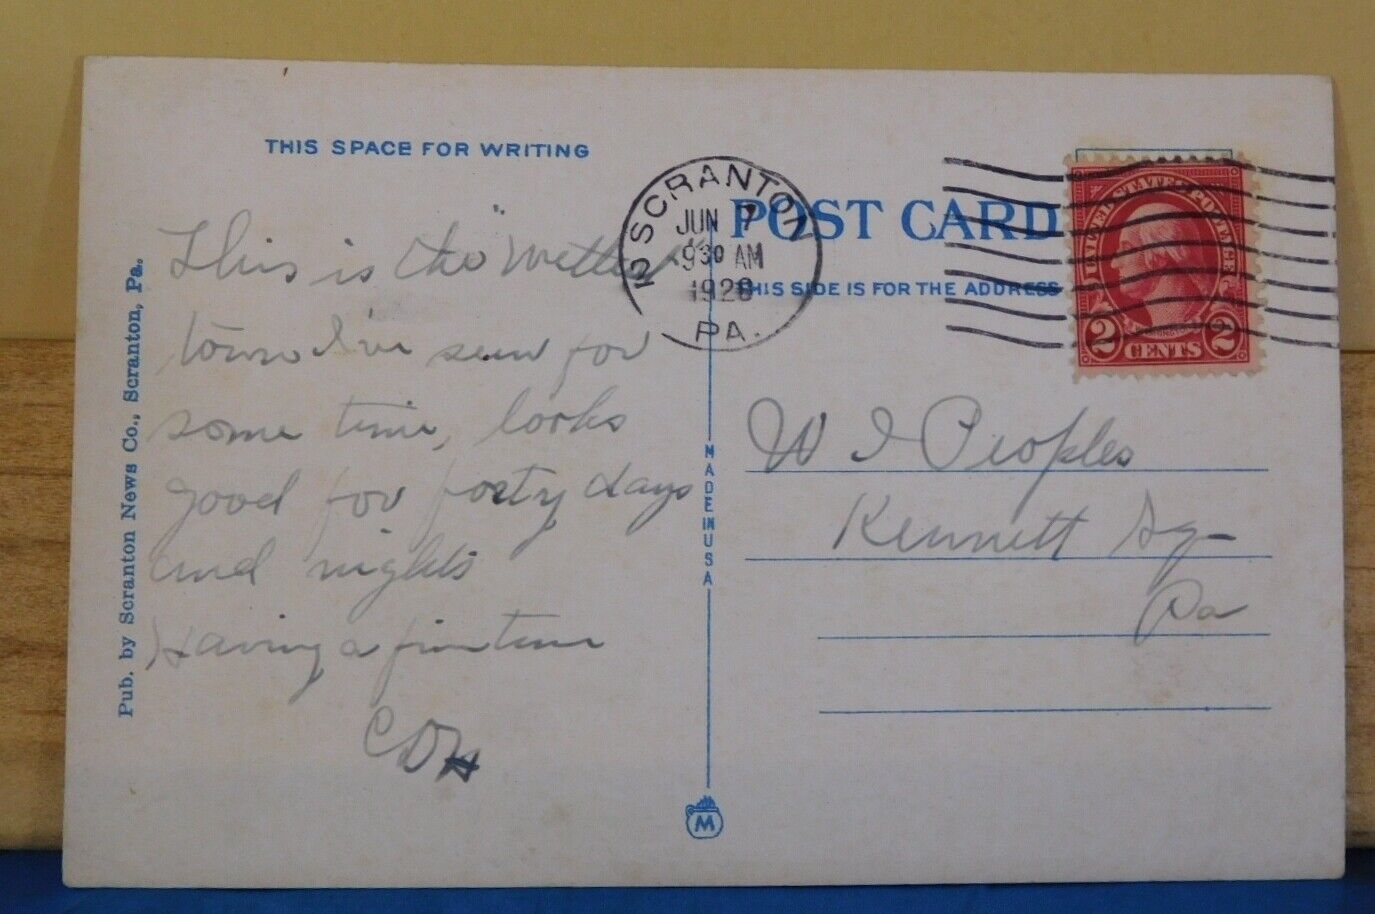 THIS SPACE FOR WRITING
This is the "wettest"
town I've seen for
some time, looks
good for forty days
and nights
Having a fine time
Pub. by Scranton News Co., Scranton, Pa.
MADE IN USA
M
SCRANTON
JUN 7
9 30 AM
1928
PA.
POST CARD
THIS SIDE IS FOR THE ADDRESS
UNITED STATES POSTAGE
2 CENTS 2
W I Peoples
Kennett Sq
Pa